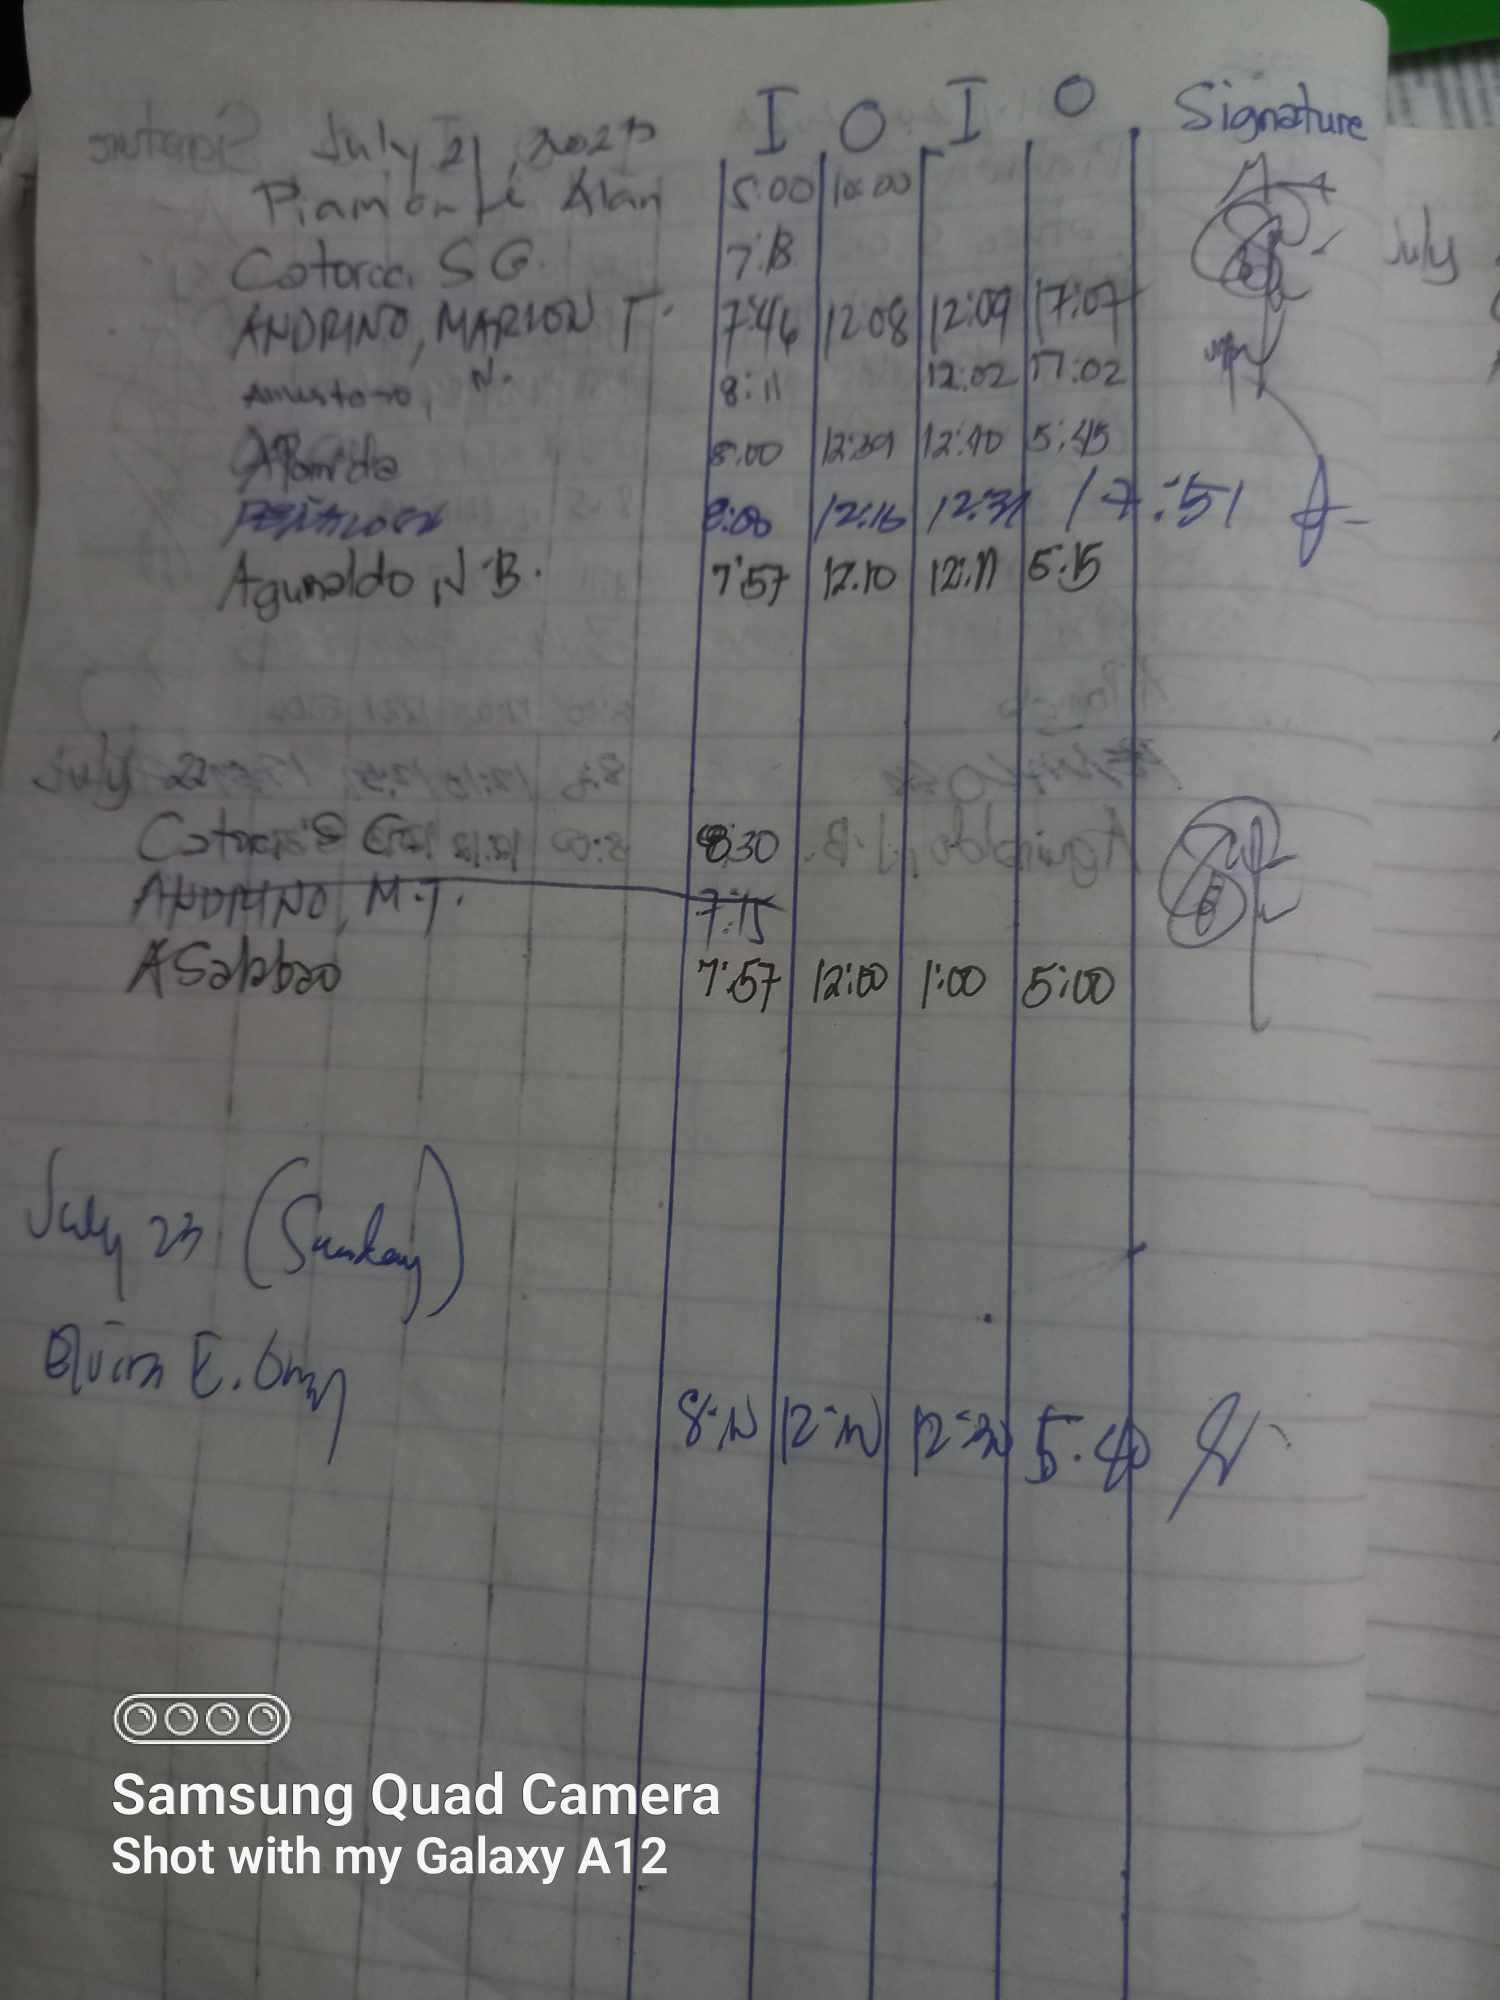 I O I O Signature
July 21, 2023
Piamonte Alan 5:00 10:00
Catorce, S G. 7:13
ANDRINO, MARLON T. 7:46 12:08 12:09 17:07
N. 8:11 12:02 17:02
8:00 12:39 12:40 5:45
8:00 12:16 12:31 17:51
Aguinaldo, J.B. 7:57 12:10 12:11 5:15
July
July 22
Catorce, S G. 8:30
ANDRINO, M.T. 7:15
A Salabao 7:57 12:00 1:00 5:00
July 23 (Sunday)
E.
8:10 12:10 12:30 5:40
Samsung Quad Camera
Shot with my Galaxy A12